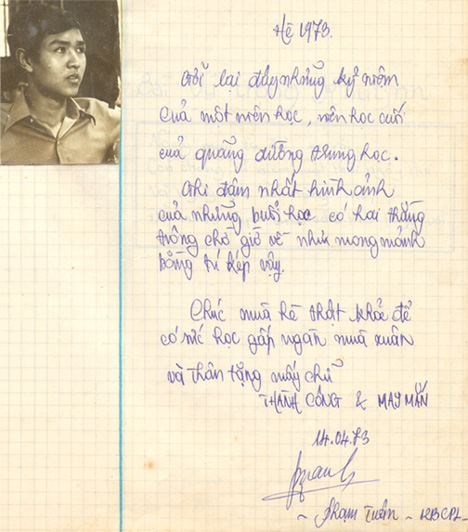 Hè 1973.
Gởi lại đây những kỷ niệm
của một niên học, niên học cuối
của quãng đường trung học.
Ghi đậm nhất hình ảnh
của những buổi học có hai thằng
trông chờ giờ về như mong mảnh
bằng tú kép vậy.
Chúc mùa hè thật khỏe để
có sức học gấp ngàn mùa xuân
và thân tặng mấy chữ
THÀNH CÔNG & MAY MẮN
14.04.73
~ Phạm Tuân ~